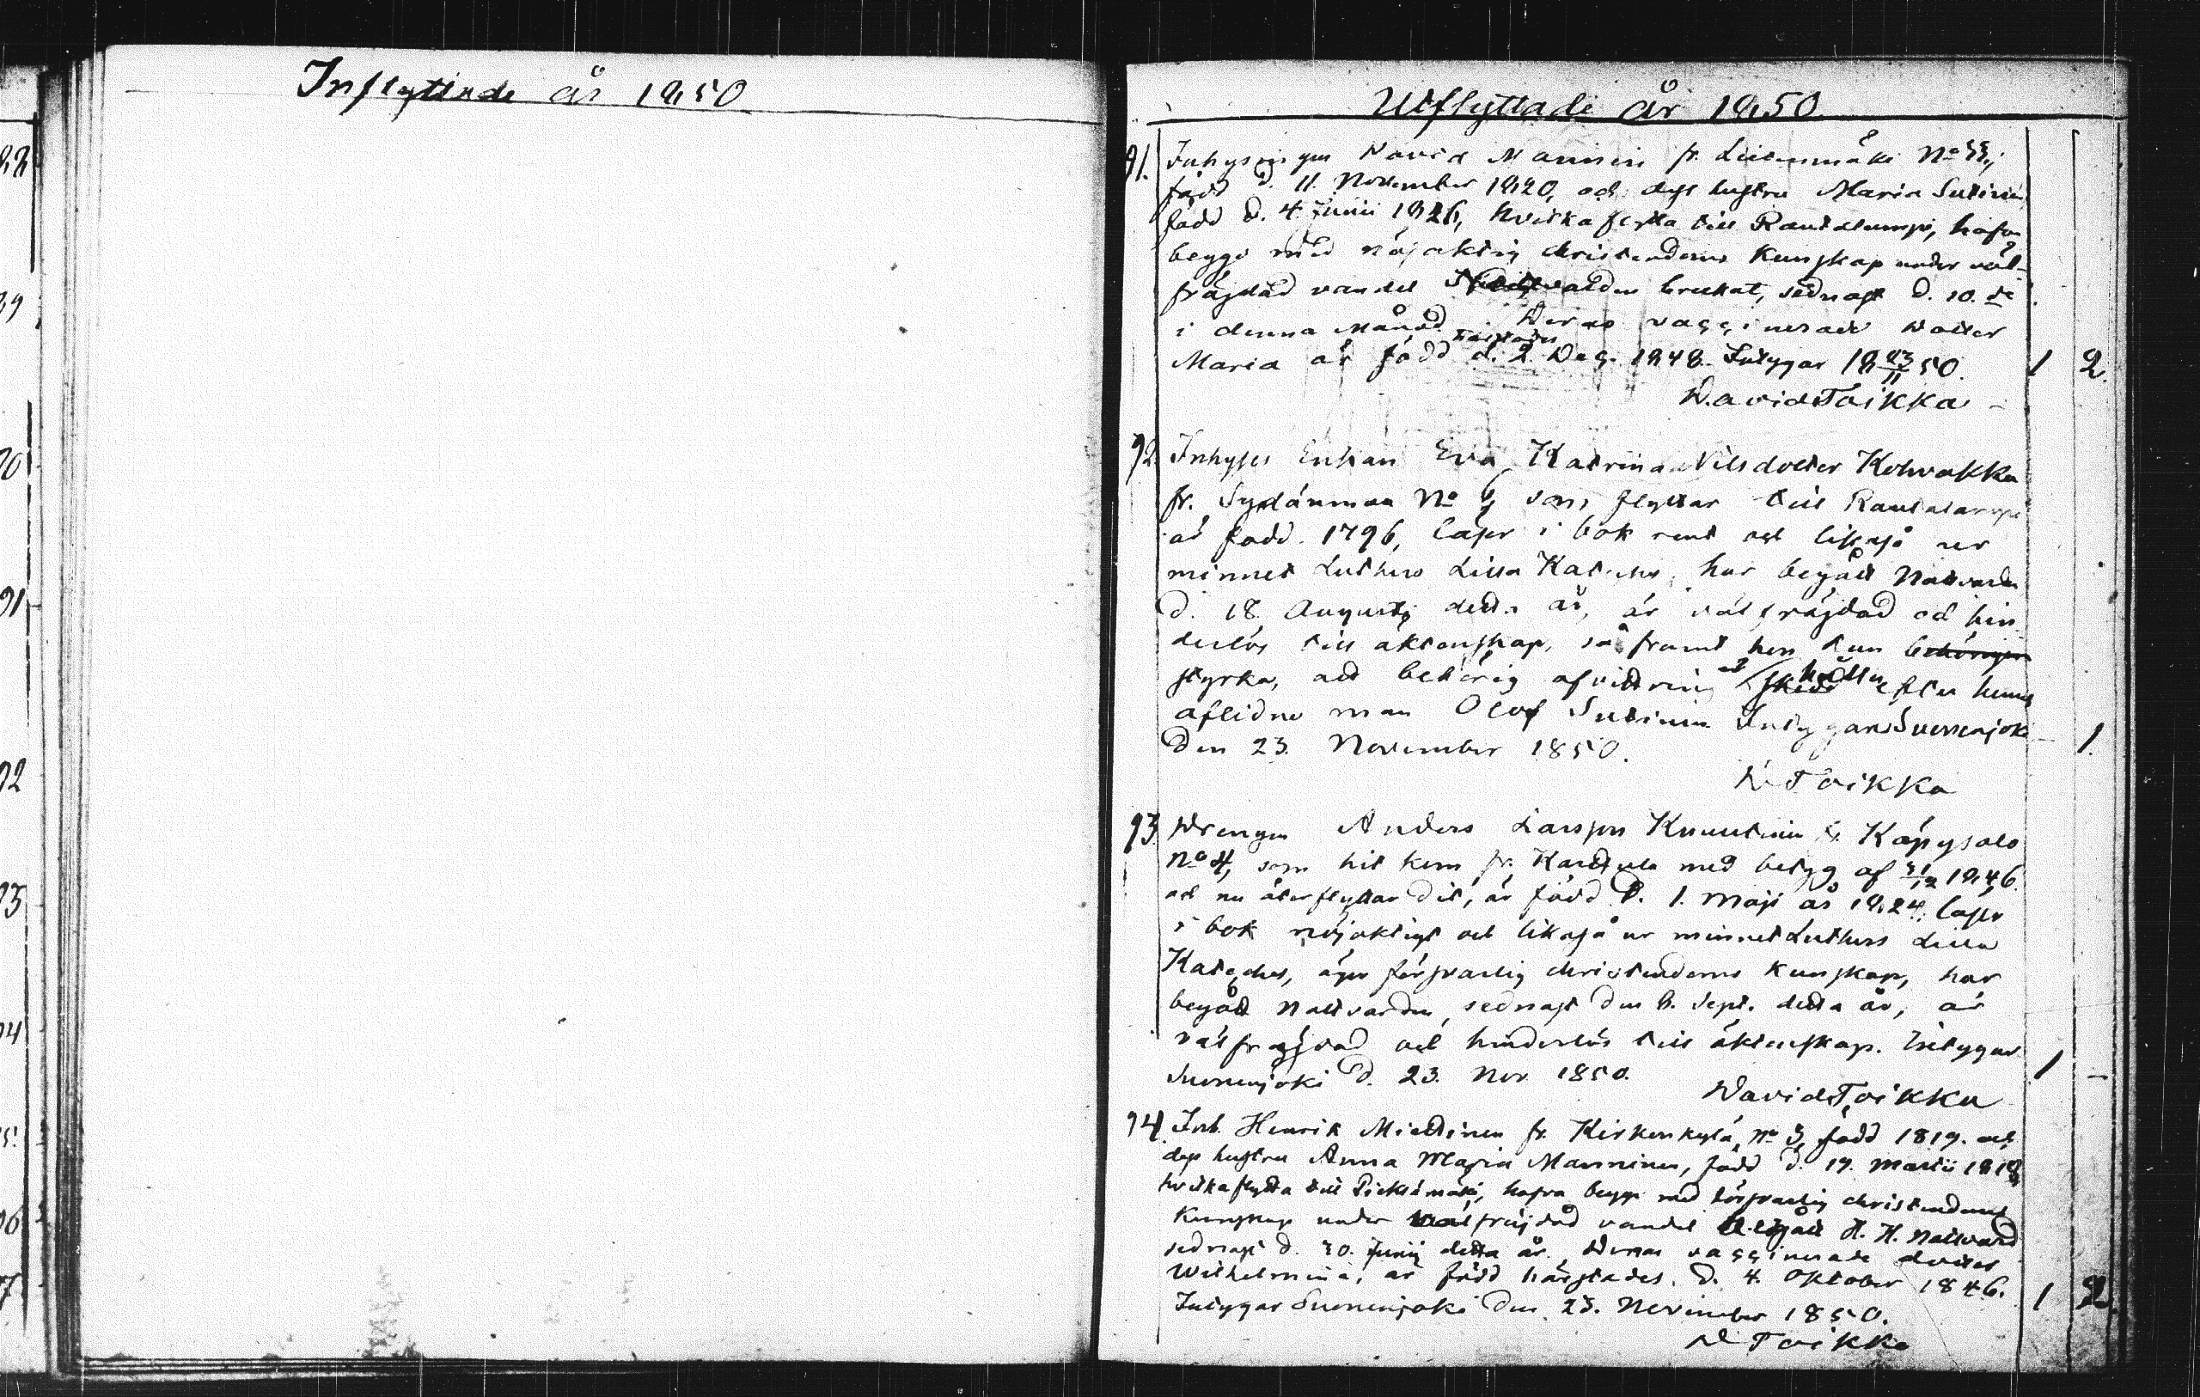 Inflyttade år 1850
Utflyttade år 1850
91. Inhysingen David Mannin fr. Liitenmäki No 33,
född d. 11. November 1820, och dess hustru Maria Sutinin,
född d. 4 Junii 1826, hvilka flytta till Rautalampi, hafva
begge med nöjaktig christendoms kunskap under väl-
fräjdad vandel Nattvarden brukat, sednast d. 10. de
i denna månad. Deras vaccinerade dotter
Maria är född härstädes d. 2. Dec. 1848. Intygar 18 23/11 50. 1 2.
David Toikka
92. Inhyses Enkan Eva Katrina Nilsdotter Kohvakka
fr. Sydänmaa No 6, som flyttar till Rautalampi
är född 1796, läser i bok rent och likaså ur
minnet Luthers Lilla Kateches, har begått Nattvarden
d. 18 Augusti detta år, är välfräjdad och hin
derlös till äktenskap, så framt hon kan
styrka, att behörig afvittring hållits efter hennes
aflidne man Olof Sutinin Intygar Suonenjoki
Den 23. November 1850. 1.
D Toikka
93. Drengen Anders Larsson Knuutinin fr. Käpysalo
No 4, som hit kom fr. Karttula med betyg af 31/12 1846.
och nu återflyttar dit, är född d. 1. Maji år 1824, läser
i bok nöjaktigt och likaså ur minnet Luthers Lilla
Kateches, äger försvarlig christendoms kunskap, har
begått Nattvarden, sednast den 8. Sept. detta år, är
välfräjdad och hinderlös till äktenskap. Intygar
Suonenjoki d. 23. Nov. 1850. 1 –
David Toikka
94. Inh. Henrik Miettinen fr. Kirkonkylä, No 3, född 1819. och
dess hustru Anna Maria Manninen, född d. 19. Martii 1818,
hvilka flytta till Pieksämäki, hafva begge med försvarlig christendoms
Kunskap under välfräjdad vandel begått H. H. Nattvard
sednast d. 30. Junii detta år. Deras vaccinerade dotter
Wilhelmina, är född härstädes d. 4 Oktober 1846. 1 2.
Intygar Suonenjoki den 23. November 1850.
D Toikka